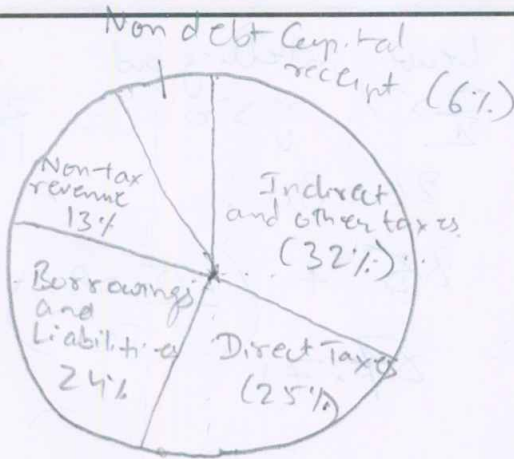 Non debt Capital
receipt (6%)
Non-tax
revenue
13%
Indirect
and other taxes
(32%)
Borrowings
and
Liabilities
24%
Direct Taxes
(25%)